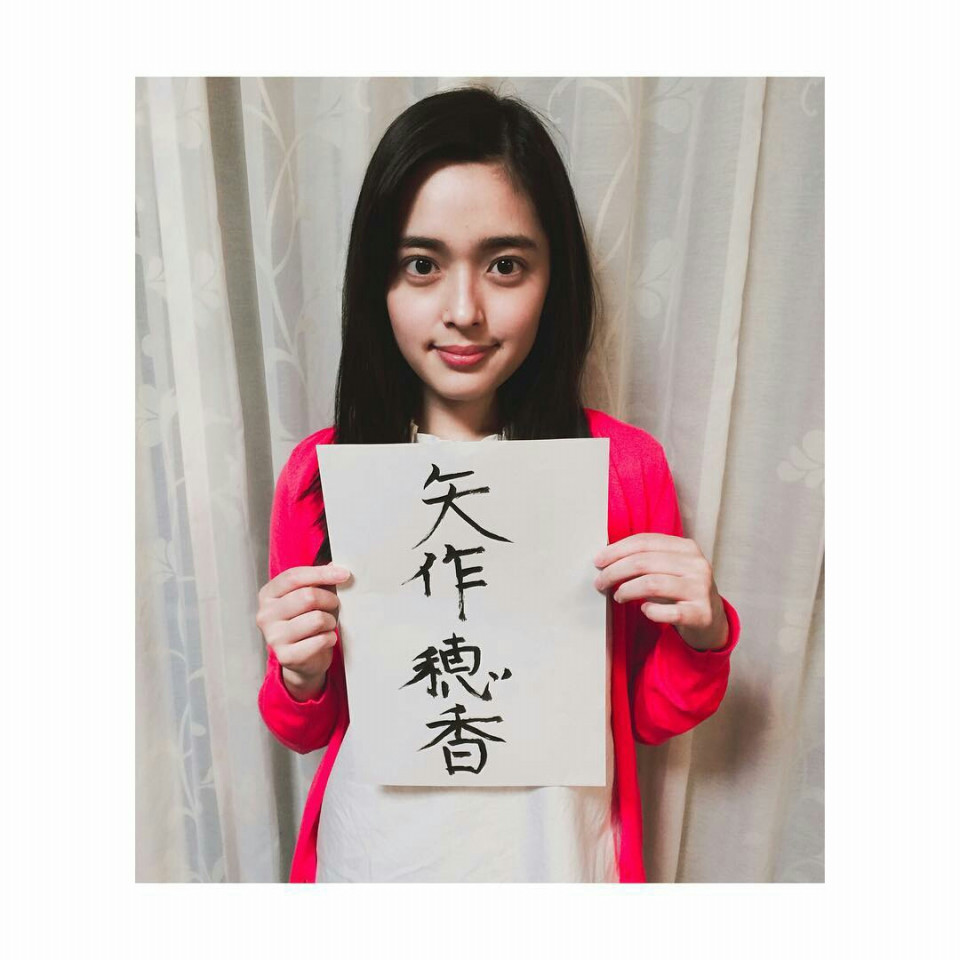 矢作穂香